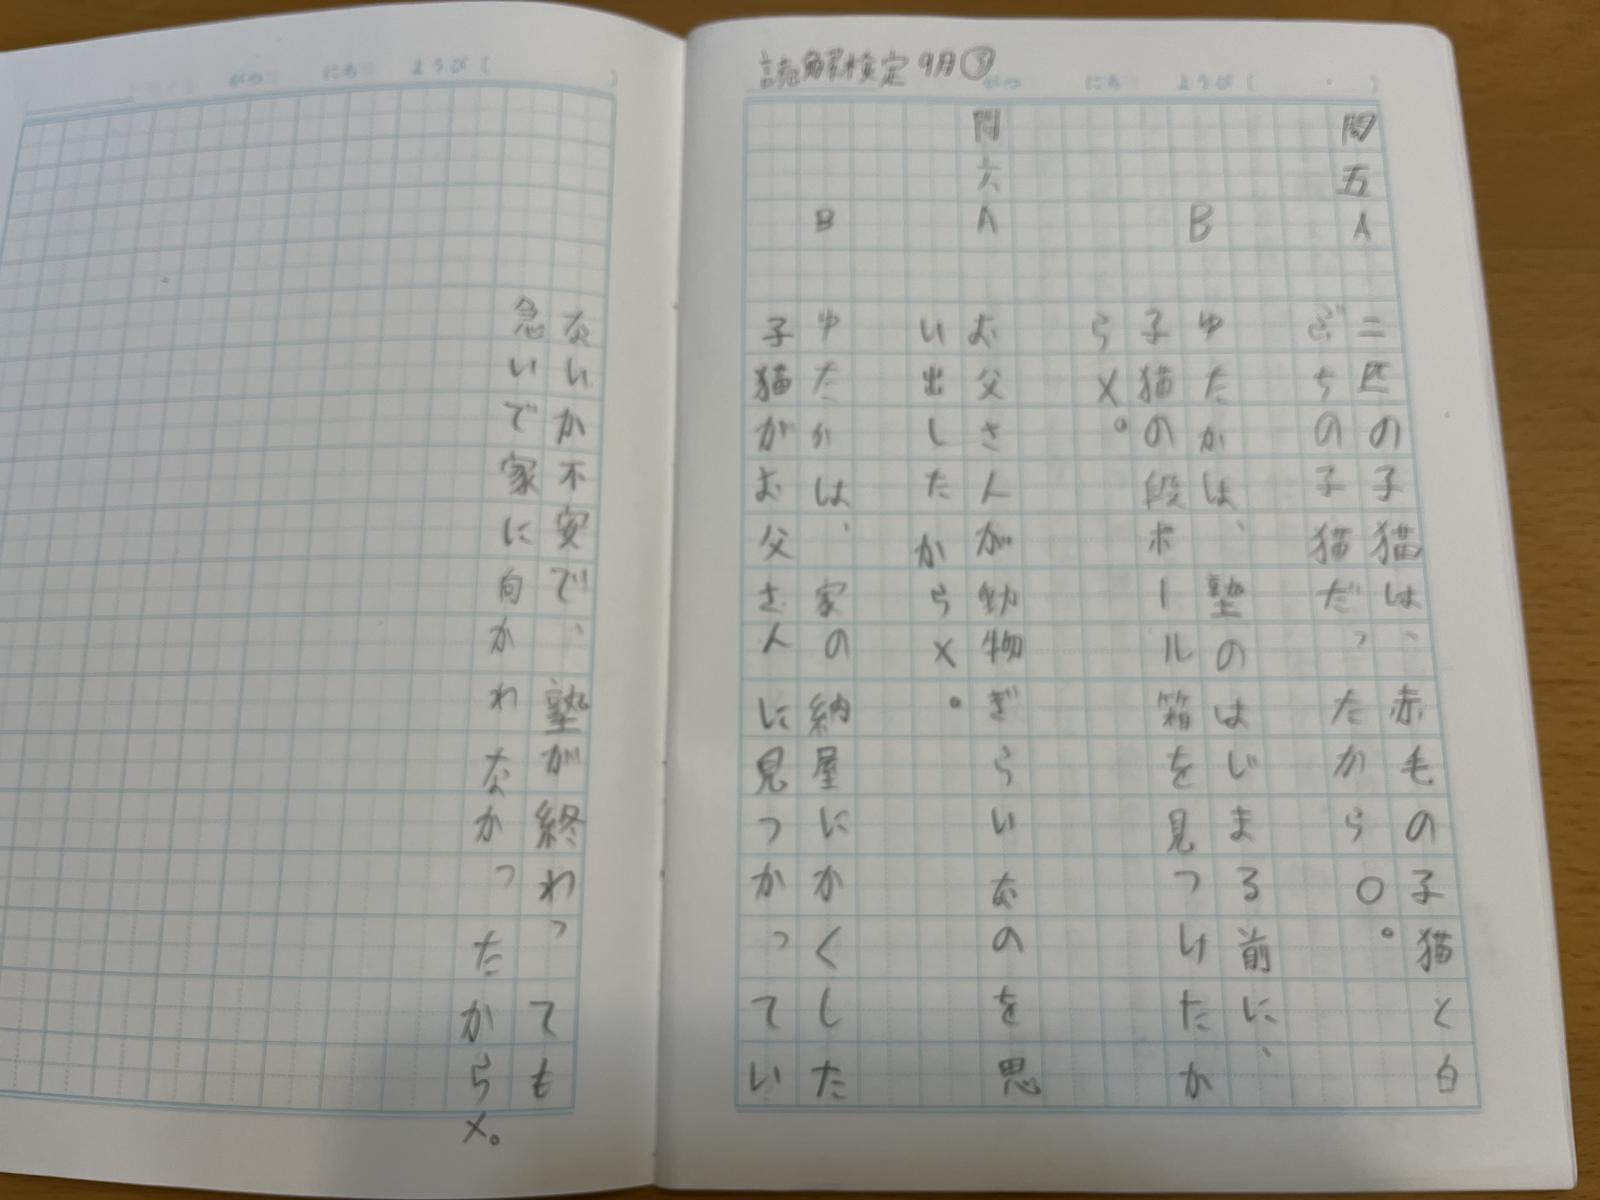 読解検定 9月③
がつ にち ようび( )
問五 A 二匹の子猫は、赤毛の子猫と白
ぶちの子猫だったから○。
B ゆたかは、塾のはじまる前に、
子猫の段ボール箱を見つけたか
ら×。
問六 A お父さんが動物ぎらいなのを思
い出したから×。
B ゆたかは、家の納屋にかくした
子猫がお父さんに見つかってい
がつ にち ようび( )
ないか不安で、塾が終わっても
急いで家に向かわなかったから×。